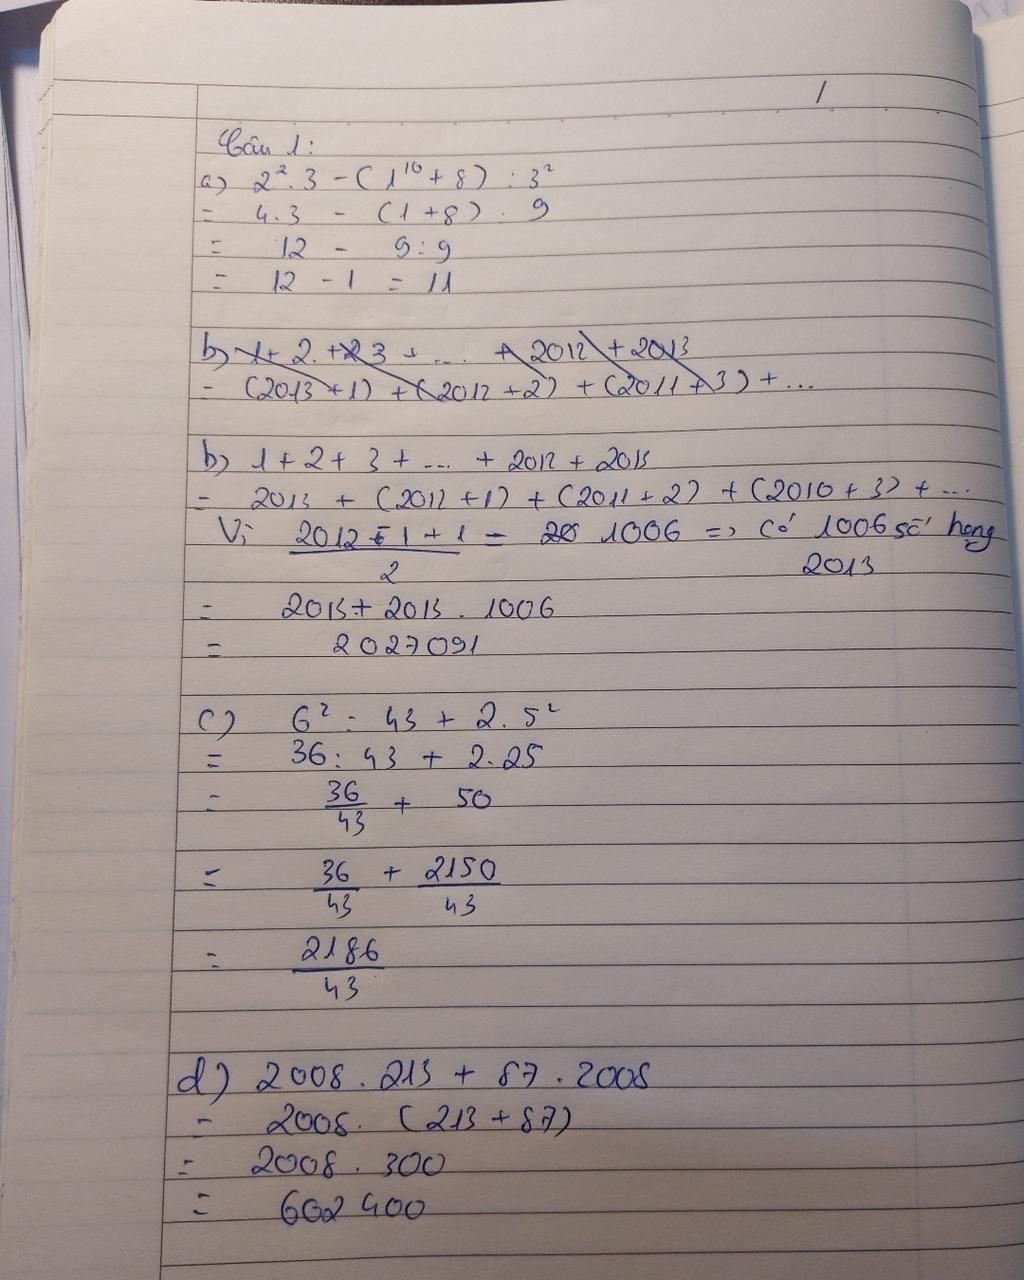 Câu 1:
a) 2². 3 - (1¹⁰ + 8) : 3²
= 4.3 - (1+8) : 9
= 12 - 9:9
= 12 - 1 = 11
b) 1+ 2 + 3 + ... + 2012 + 2013
= (2013 + 1) + (2012 + 2) + (2011 + 3) + ...
b) 1 + 2 + 3 + ... + 2012 + 2013
= 2013 + (2012 + 1) + (2011 + 2) + (2010 + 3) + ...
Vì (2012 - 1 + 1)/2 = 1006 => có 1006 số hạng
2013
= 2013 + 2013 . 1006
= 2027091
c) 6² : 43 + 2. 5²
= 36 : 43 + 2.25
= 36/43 + 50
= 36/43 + 2150/43
= 2186/43
d) 2008 . 213 + 87 . 2008
= 2008. (213 + 87)
= 2008 . 300
= 602 400